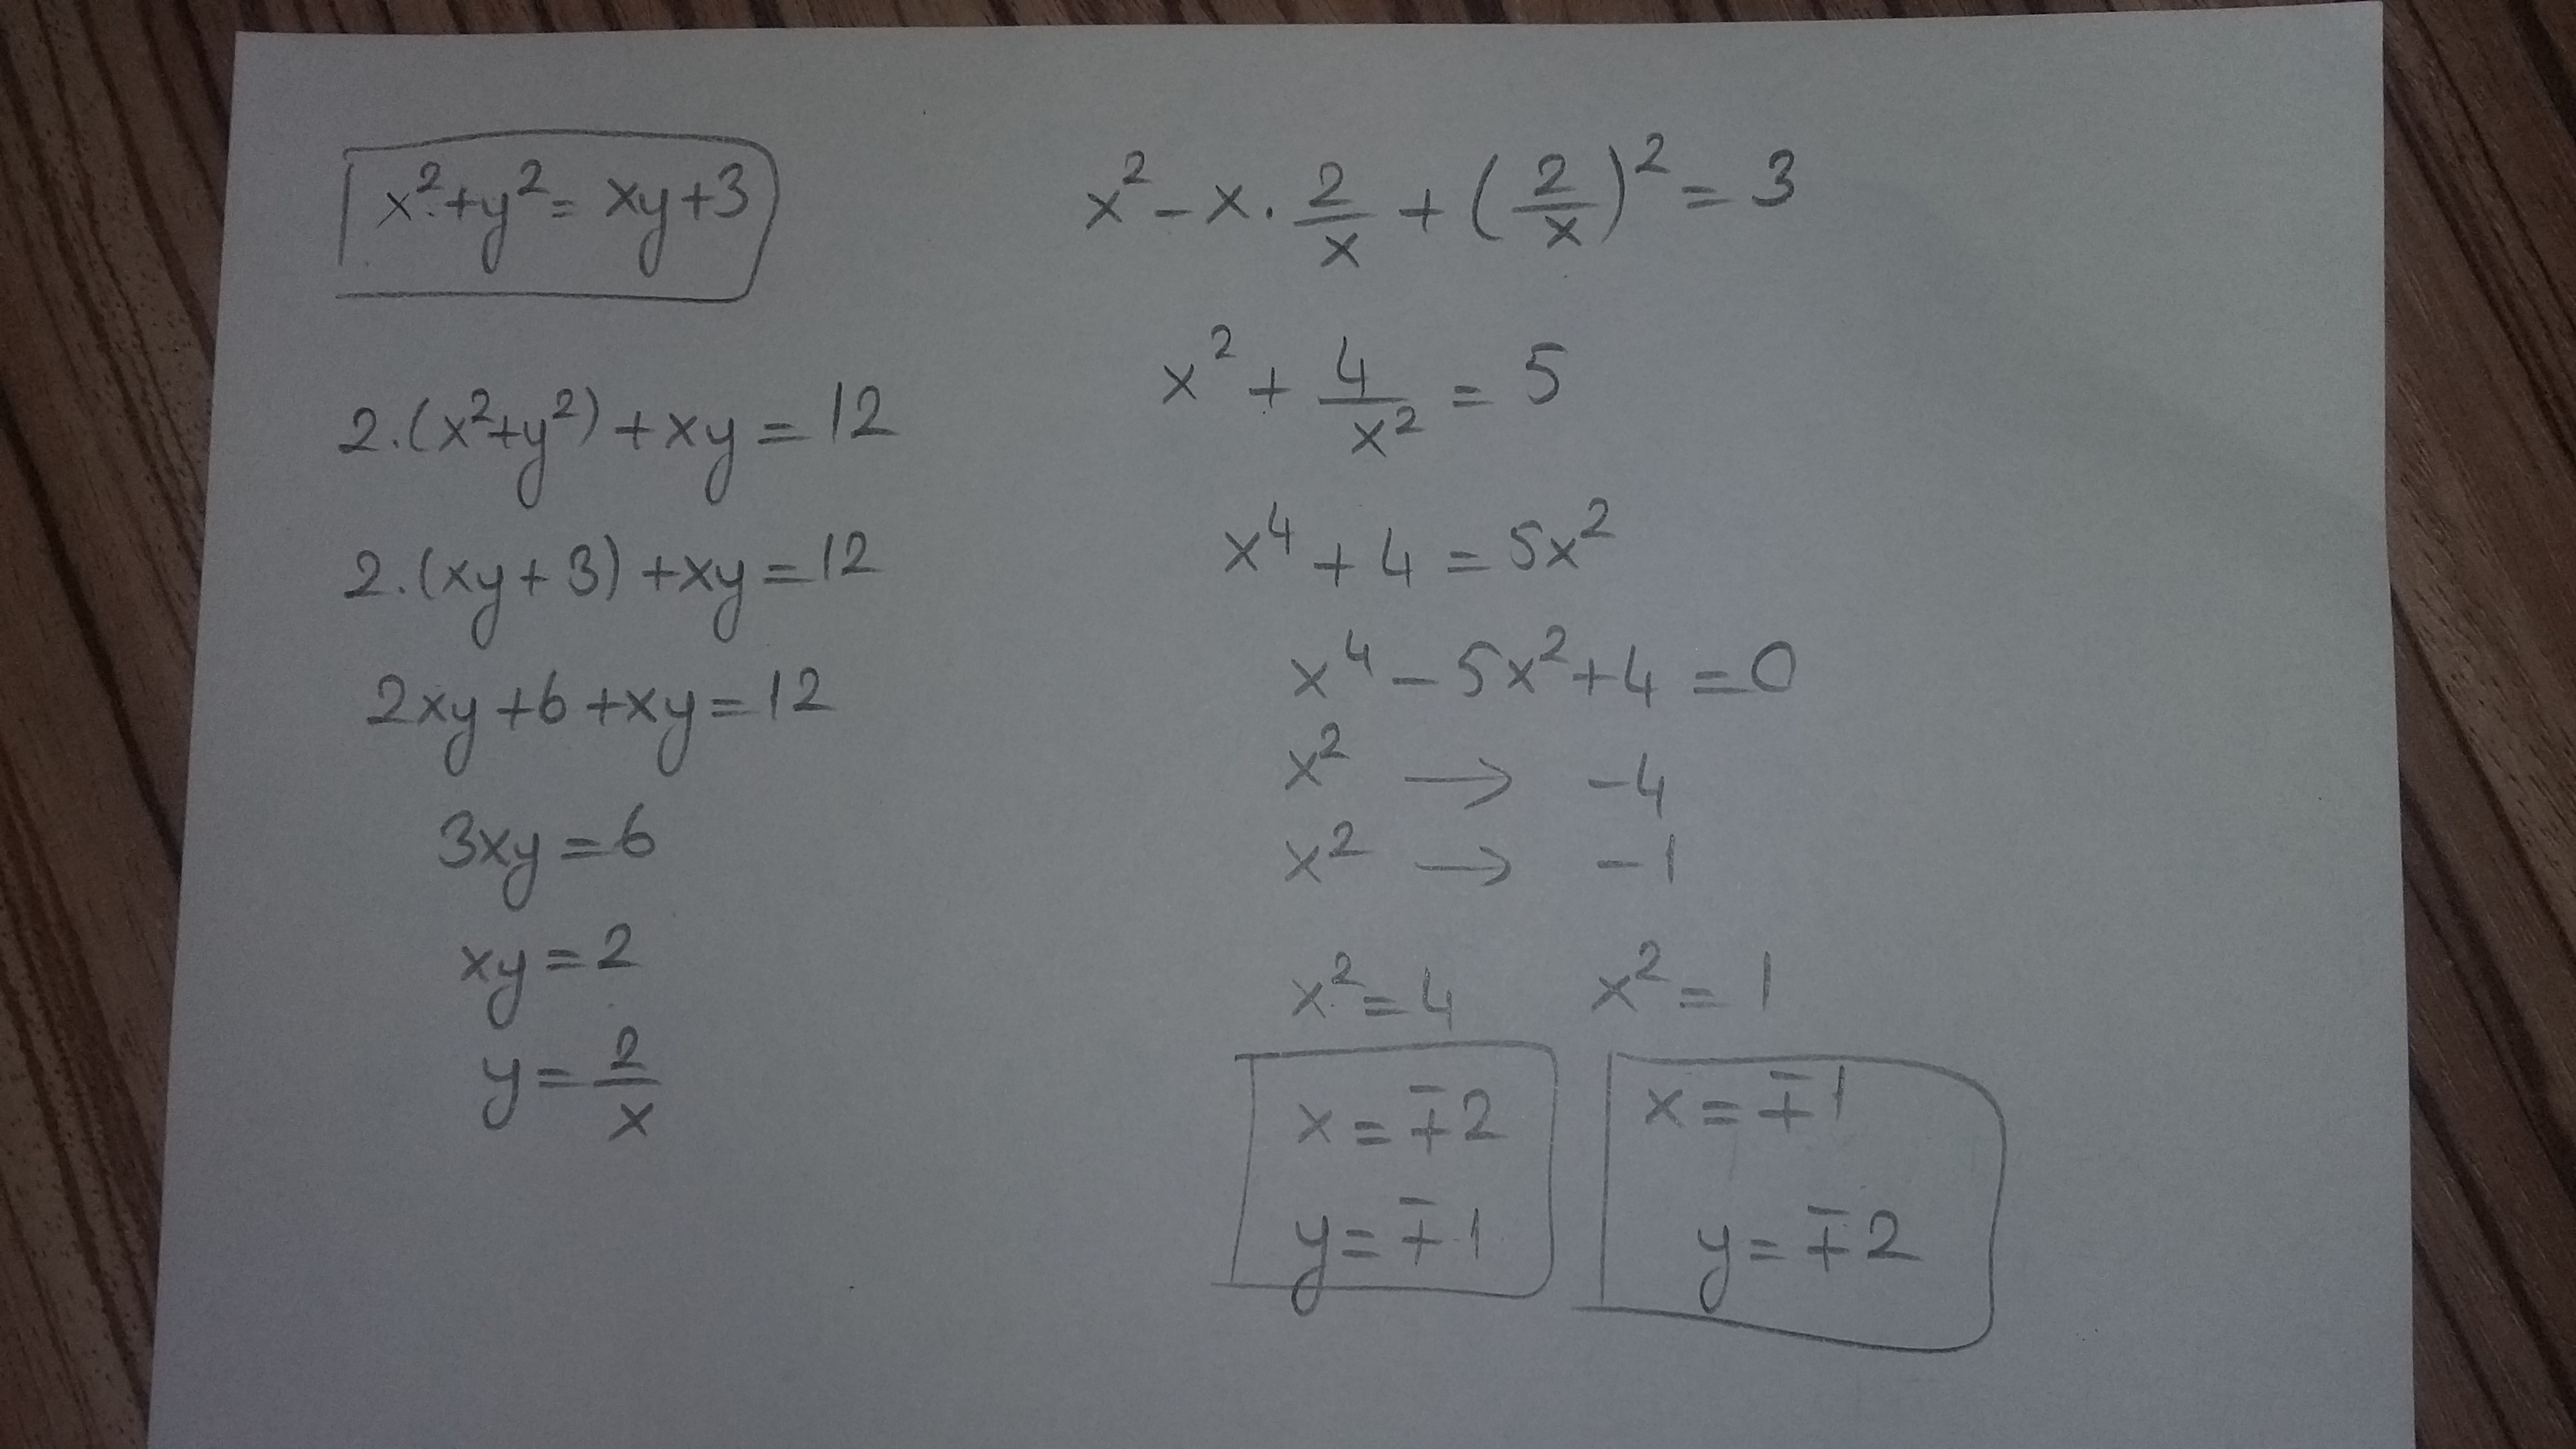 x²+y²= xy+3
2.(x²+y²)+xy=12
2.(xy+3)+xy=12
2xy+6+xy=12
3xy=6
xy=2
y=2/x
x²-x.2/x+(2/x)²=3
x²+4/x²=5
x⁴+4=5x²
x⁴-5x²+4=0
x² → -4
x² → -1
x²=4 x²=1
x=∓2 x=∓1
y=∓1 y=∓2